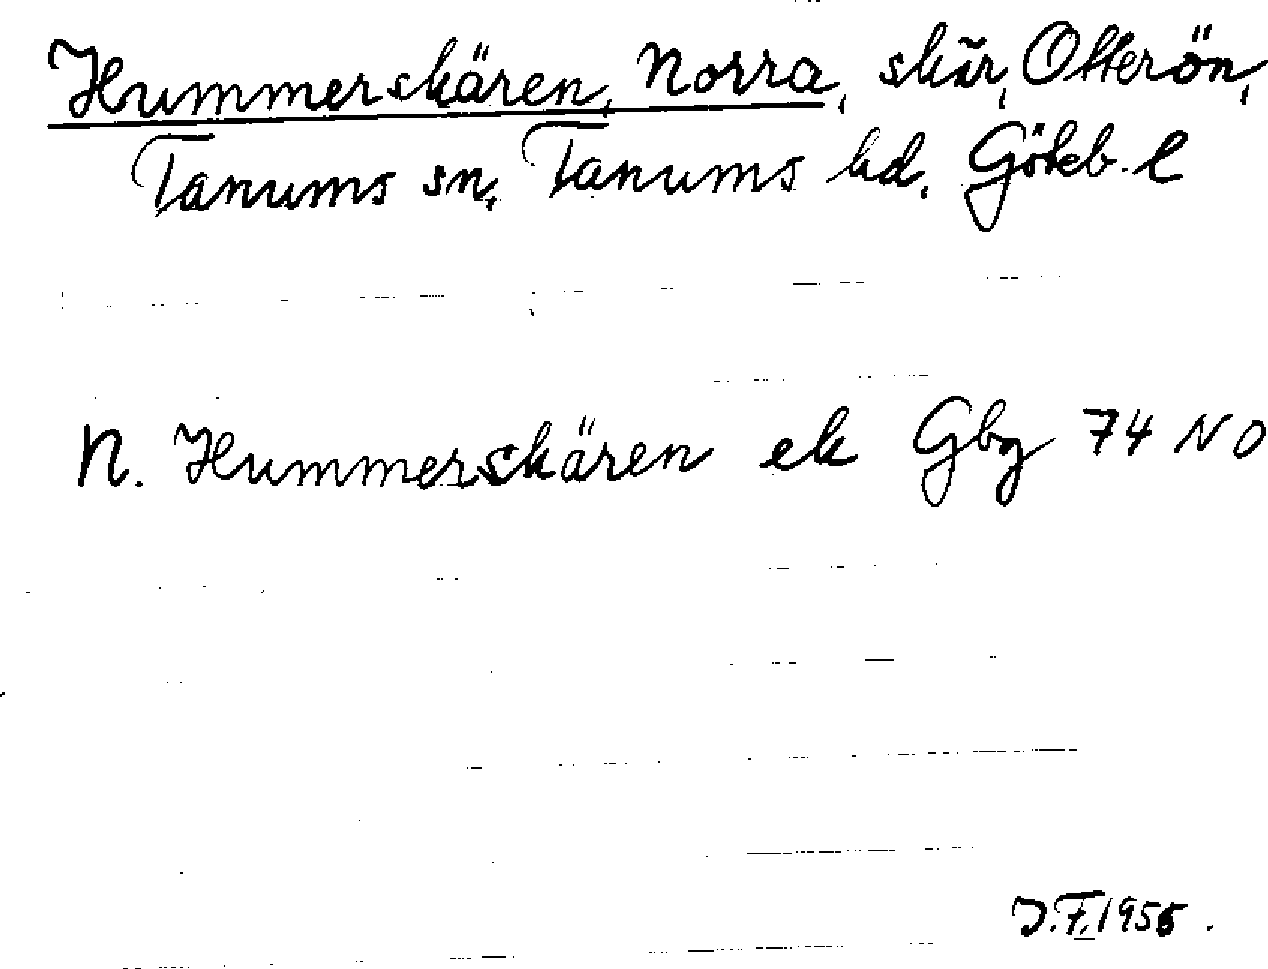 Hummerskären, Norra, skär, Otterön,
Tanums sn, Tanums hd. Göteb. l
N. Hummerskären ek Gbg 74 NO
J.F. 1956.